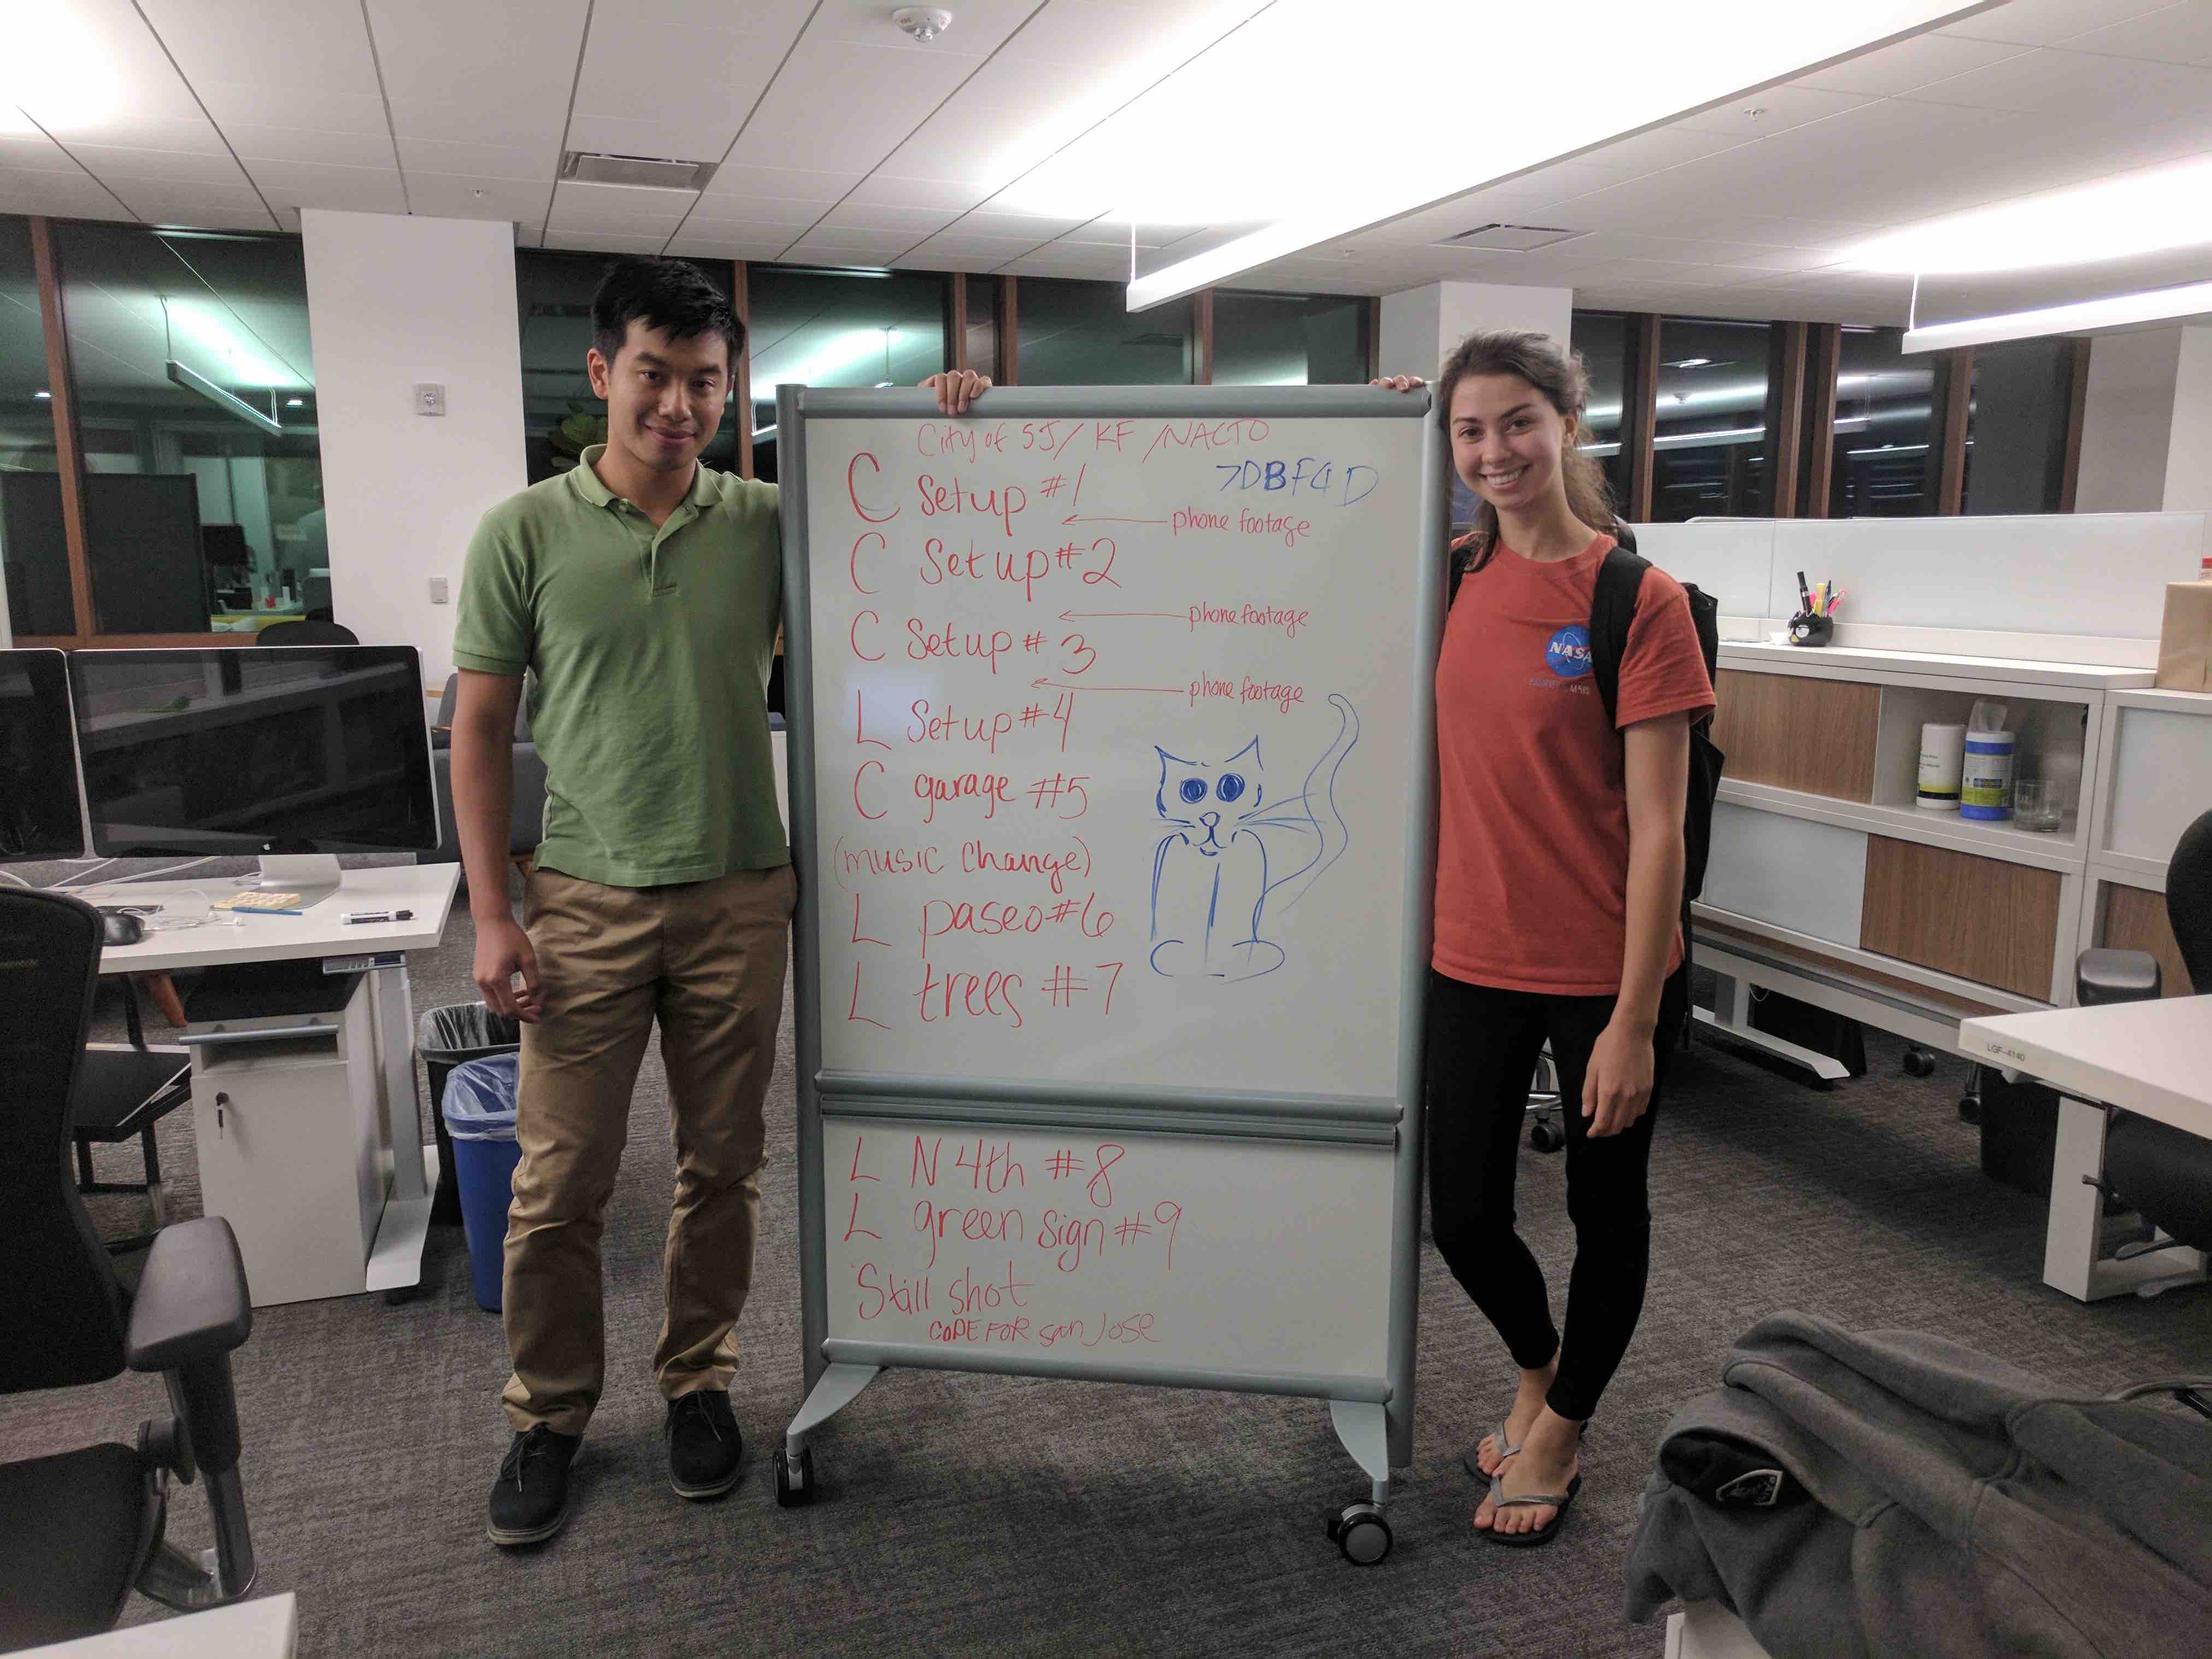 City of SJ / KF / NACTO
7DBF4D
C Setup #1
phone footage
C Setup #2
phone footage
C Setup #3
phone footage
L Setup #4
C garage #5
(music change)
L paseo #6
L trees #7
L N 4th #8
L green sign #9
Still shot
CODE FOR San Jose
NASA
LGF-4140